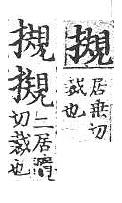 摫
居垂切
裁也
摫
摫
二居
切裁也